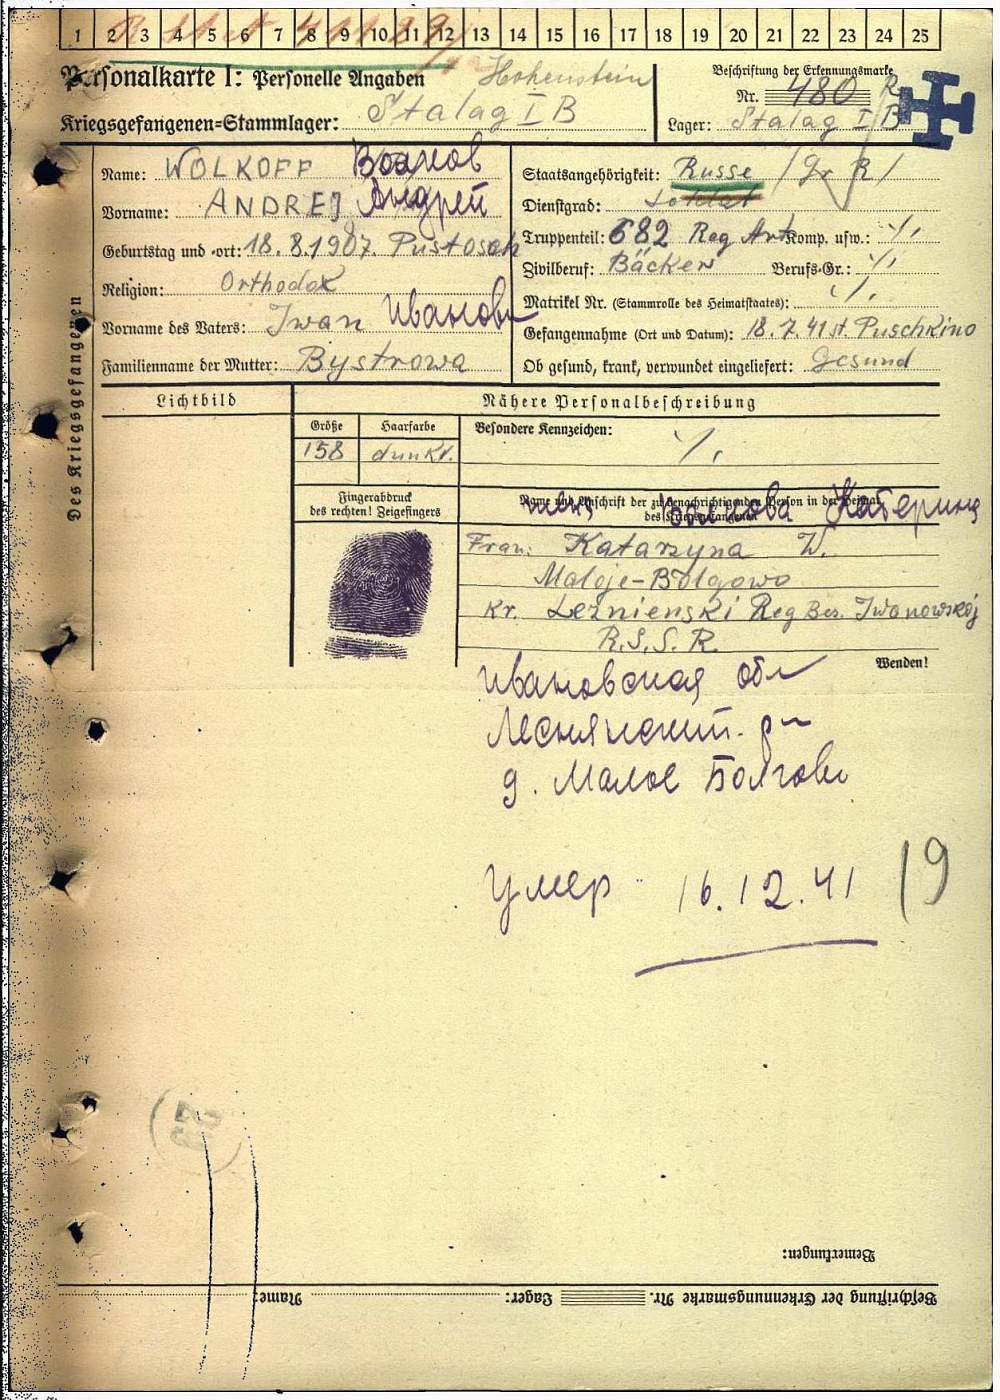 1 2 3 4 5 6 7 8 9 10 11 12 13 14 15 16 17 18 19 20 21 22 23 24 25
Personalkarte I: Personelle Angaben
Hohenstein
Kriegsgefangenen-Stammlager: Stalag I B
Beschriftung der Erkennungsmarke
Nr. 480 R
Lager: Stalag I B
Des Kriegsgefangenen
Name: WOLKOFF Волков
Vorname: ANDREJ Андрей
Geburtstag und -ort: 18.8.1907. Pustosch
Religion: Orthodox
Vorname des Vaters: Iwan Иванов
Familienname der Mutter: Bystrowa
Staatsangehörigkeit: Russe /Gr R/
Dienstgrad: Soldat
Truppenteil: 682 Reg Art Komp. usw.: ·/.
Zivilberuf: Bäcker Berufs-Gr.: ·/.
Matrikel Nr. (Stammrolle des Heimatstaates): ·/.
Gefangennahme (Ort und Datum): 18.7.41 st. Puschkino
Ob gesund, krank, verwundet eingeliefert: Gesund
Lichtbild
Nähere Personalbeschreibung
Größe Haarfarbe Besondere Kennzeichen:
158 dunkl. ·/.
Fingerabdruck
des rechten! Zeigefingers
Name und Anschrift der zu benachrichtigenden Person in der Heimat
des Kriegsgefangenen
жена Волкова Катерина
Frau: Katarzyna W.
Maloje-Bolgowo
Kr. Leznienski Reg Bez. Iwanowskoj
R.S.S.R.
Wenden!
Ивановская обл
д. Малое Болгово
Умер 16.12.41
19
Bemerkungen:
Beschriftung der Erkennungsmarke Nr. Lager: Name: